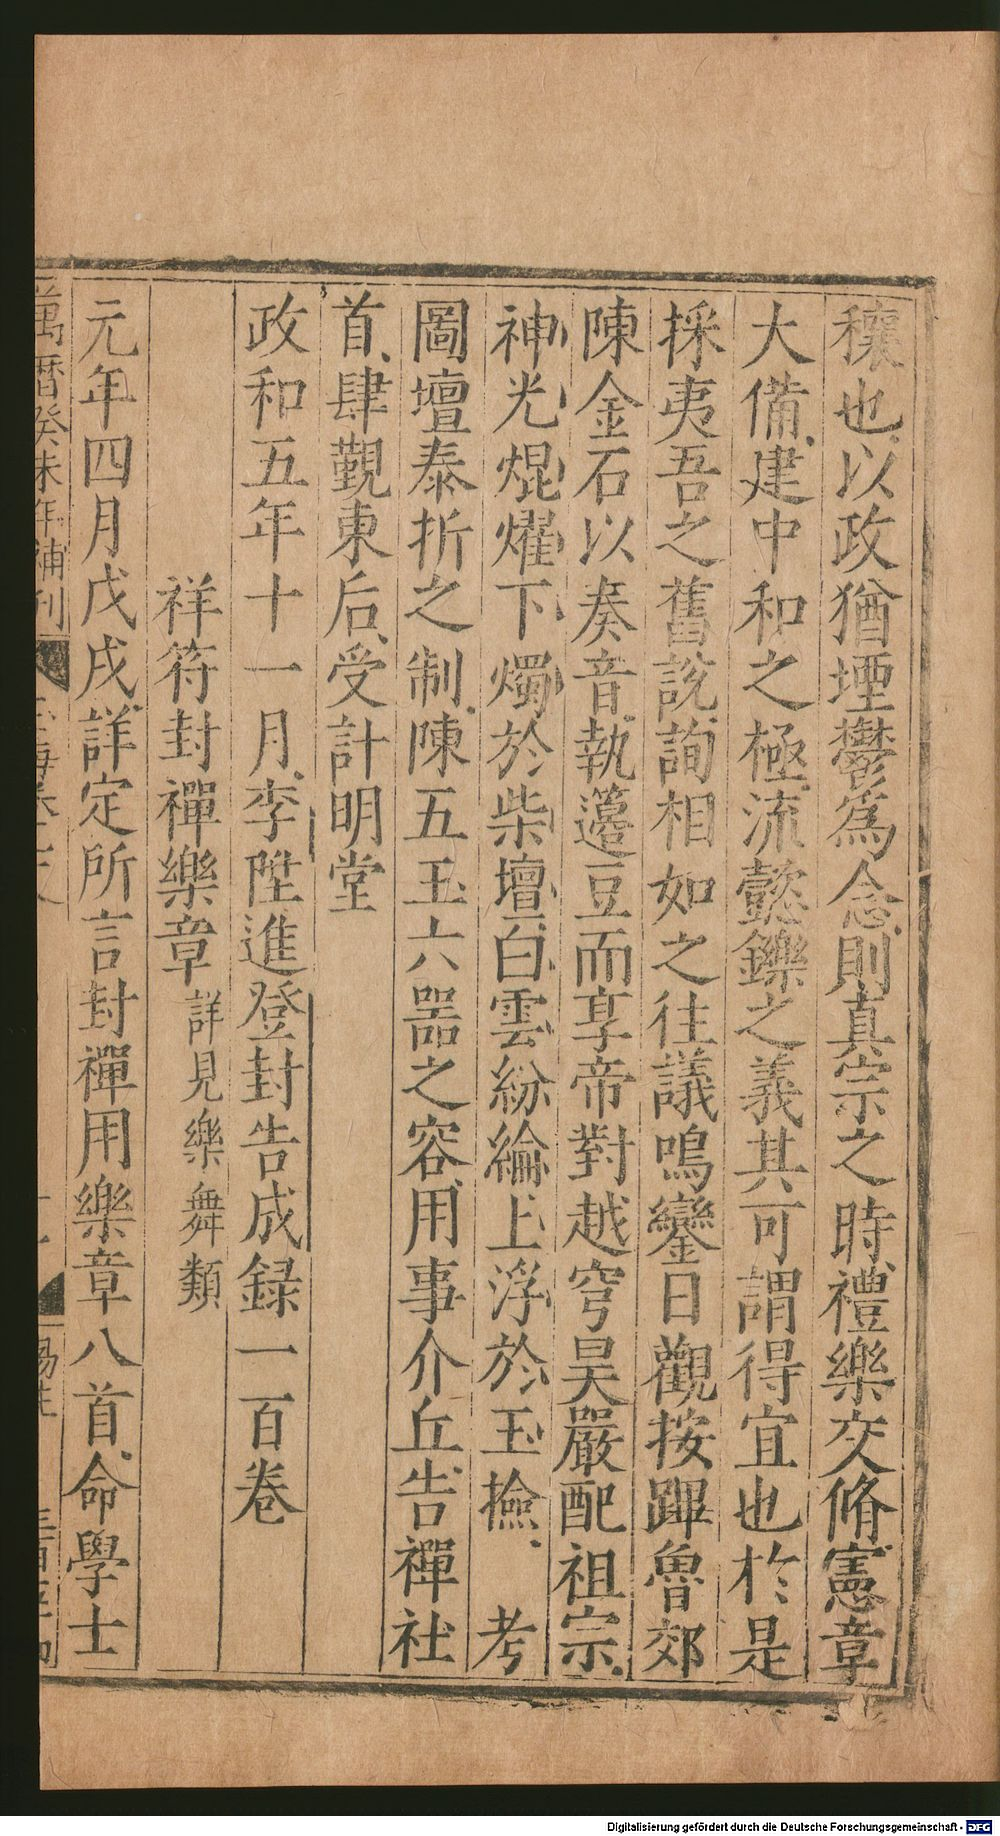 穰也以政猶堙鬱爲念則真宗之時禮樂交脩憲章
大備建中和之極流懿鑠之義其可謂得宜也於是
採夷吾之舊說詢相如之往議鳴鑾日觀按蹕魯郊
陳金石以奏音執籩豆而享帝對越穹昊嚴配祖宗
神光焜燿下燭於柴壇白雲紛綸上浮於玉撿考
圖壇泰折之制陳五玉六器之容用事介丘告禪社
首肆覲東后受計明堂
政和五年十一月李陞進登封告成録一百卷
祥符封禪樂章詳見樂舞類
元年四月戊戌詳定所言封禪用樂章八首命學士
萬曆癸未年補刊
Digitalisierung gefördert durch die Deutsche Forschungsgemeinschaft - DFG